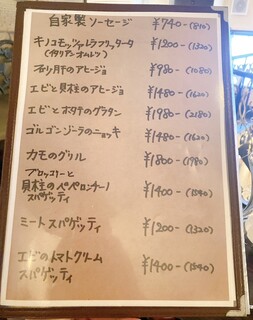 自家製ソーセージ ¥740-(810)
キノコモッツァレラフリッタータ ¥1200-(1320)
(イタリアンオムレツ)
砂肝のアヒージョ ¥980-(1080)
エビと貝柱のアヒージョ ¥1480-(1620)
エビとホタテのグラタン ¥1980-(2180)
ゴルゴンゾーラのニョッキ ¥1480-(1620)
カモのグリル ¥1800-(1980)
ブロッコリーと
貝柱のペペロンチーノ ¥1400-(1540)
スパゲッティ
ミートスパゲッティ ¥1200-(1320)
エビのトマトクリーム ¥1400-(1540)
スパゲッティ